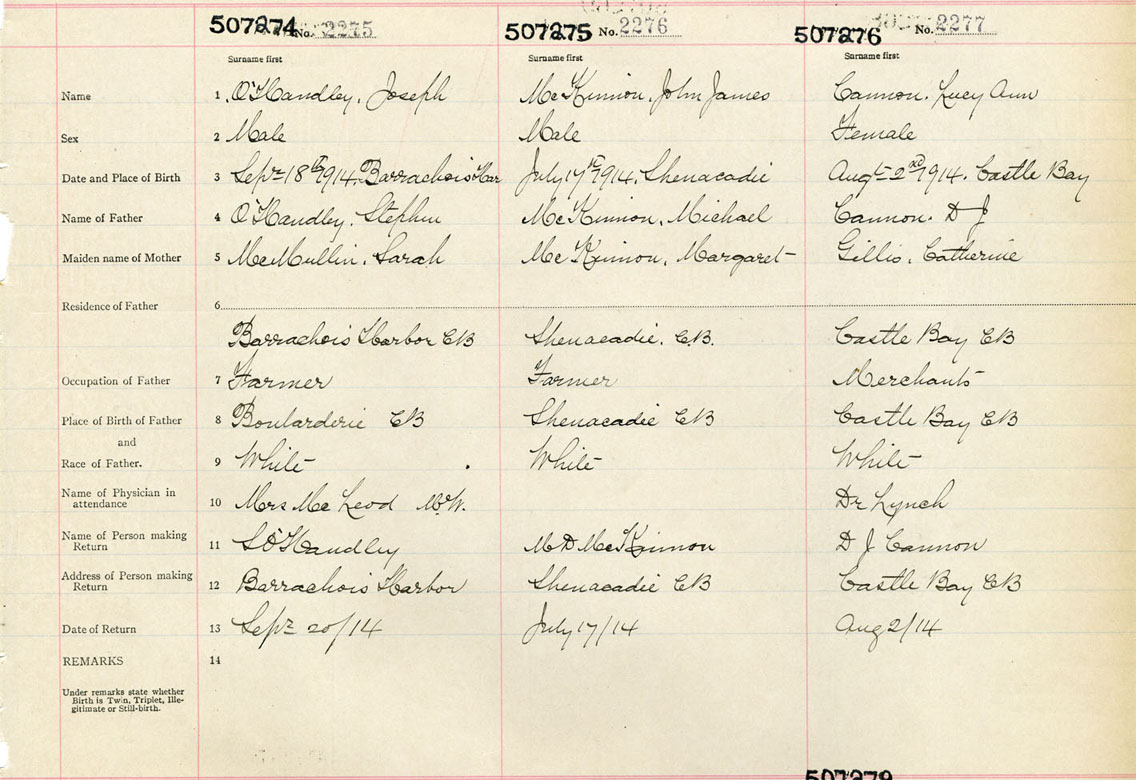 507274 No. 2275 507275 No. 2276 507276 No. 2277
Surname first Surname first Surname first
Name 1 O'Handley, Joseph McKinnon, John James Cannon. Lucy Ann
Sex 2 Male Male Female
Date and Place of Birth 3 Sept 18th 1914, Barrachois Har July 17th 1914, Shenacadie Augt 2nd 1914. Castle Bay
Name of Father 4 O'Handley, Stephen McKinnon, Michael Cannon. D J
Maiden name of Mother 5 McMullin, Sarah McKinnon, Margaret Gillis, Catherine
Residence of Father 6
Barrachois Harbor CB Shenacadie. C.B. Castle Bay CB
Occupation of Father 7 Farmer Farmer Merchant
Place of Birth of Father 8 Boularderie CB Shenacadie CB Castle Bay CB
and
Race of Father. 9 White White White
Name of Physician in
attendance 10 Mrs McLeod M.W. Dr Lynch
Name of Person making
Return 11 S O'Handley M D McKinnon D J Cannon
Address of Person making
Return 12 Barrachois Harbor Shenacadie CB Castle Bay CB
Date of Return 13 Sept 20/14 July 17/14 Aug 2/14
REMARKS 14
Under remarks state whether
Birth is Twin, Triplet, Ille-
gitimate or Still-birth.